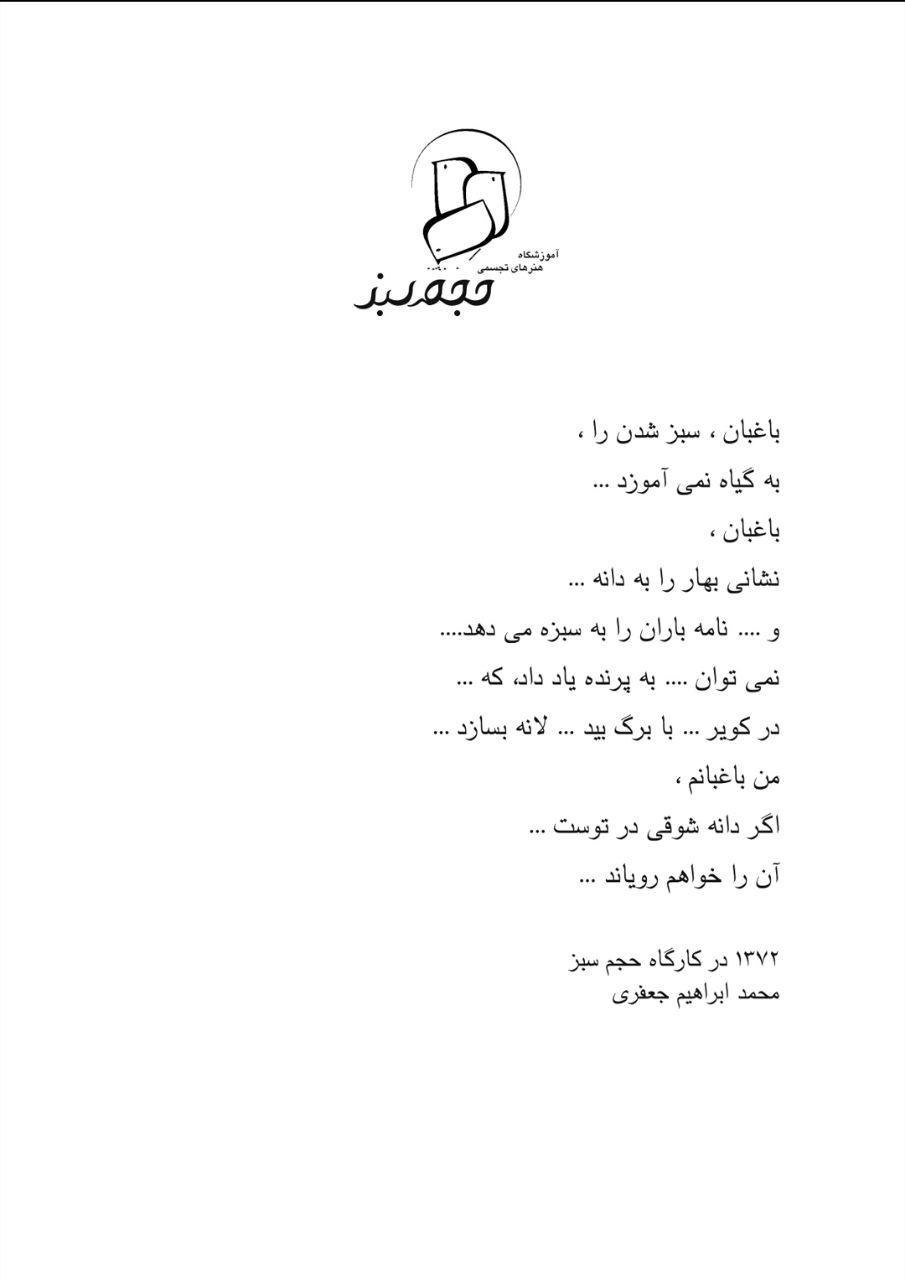 آموزشگاه
هنرهای تجسمی
حجم سبز
باغبان ، سبز شدن را ،
به گیاه نمی آموزد ...
باغبان ،
نشانی بهار را به دانه ...
و .... نامه باران را به سبزه می دهد....
نمی توان .... به پرنده یاد داد، که ...
در کویر ... با برگ بید ... لانه بسازد ...
من باغبانم ،
اگر دانه شوقی در توست ...
آن را خواهم رویاند ...
۱۳۷۲ در کارگاه حجم سبز
محمد ابراهیم جعفری